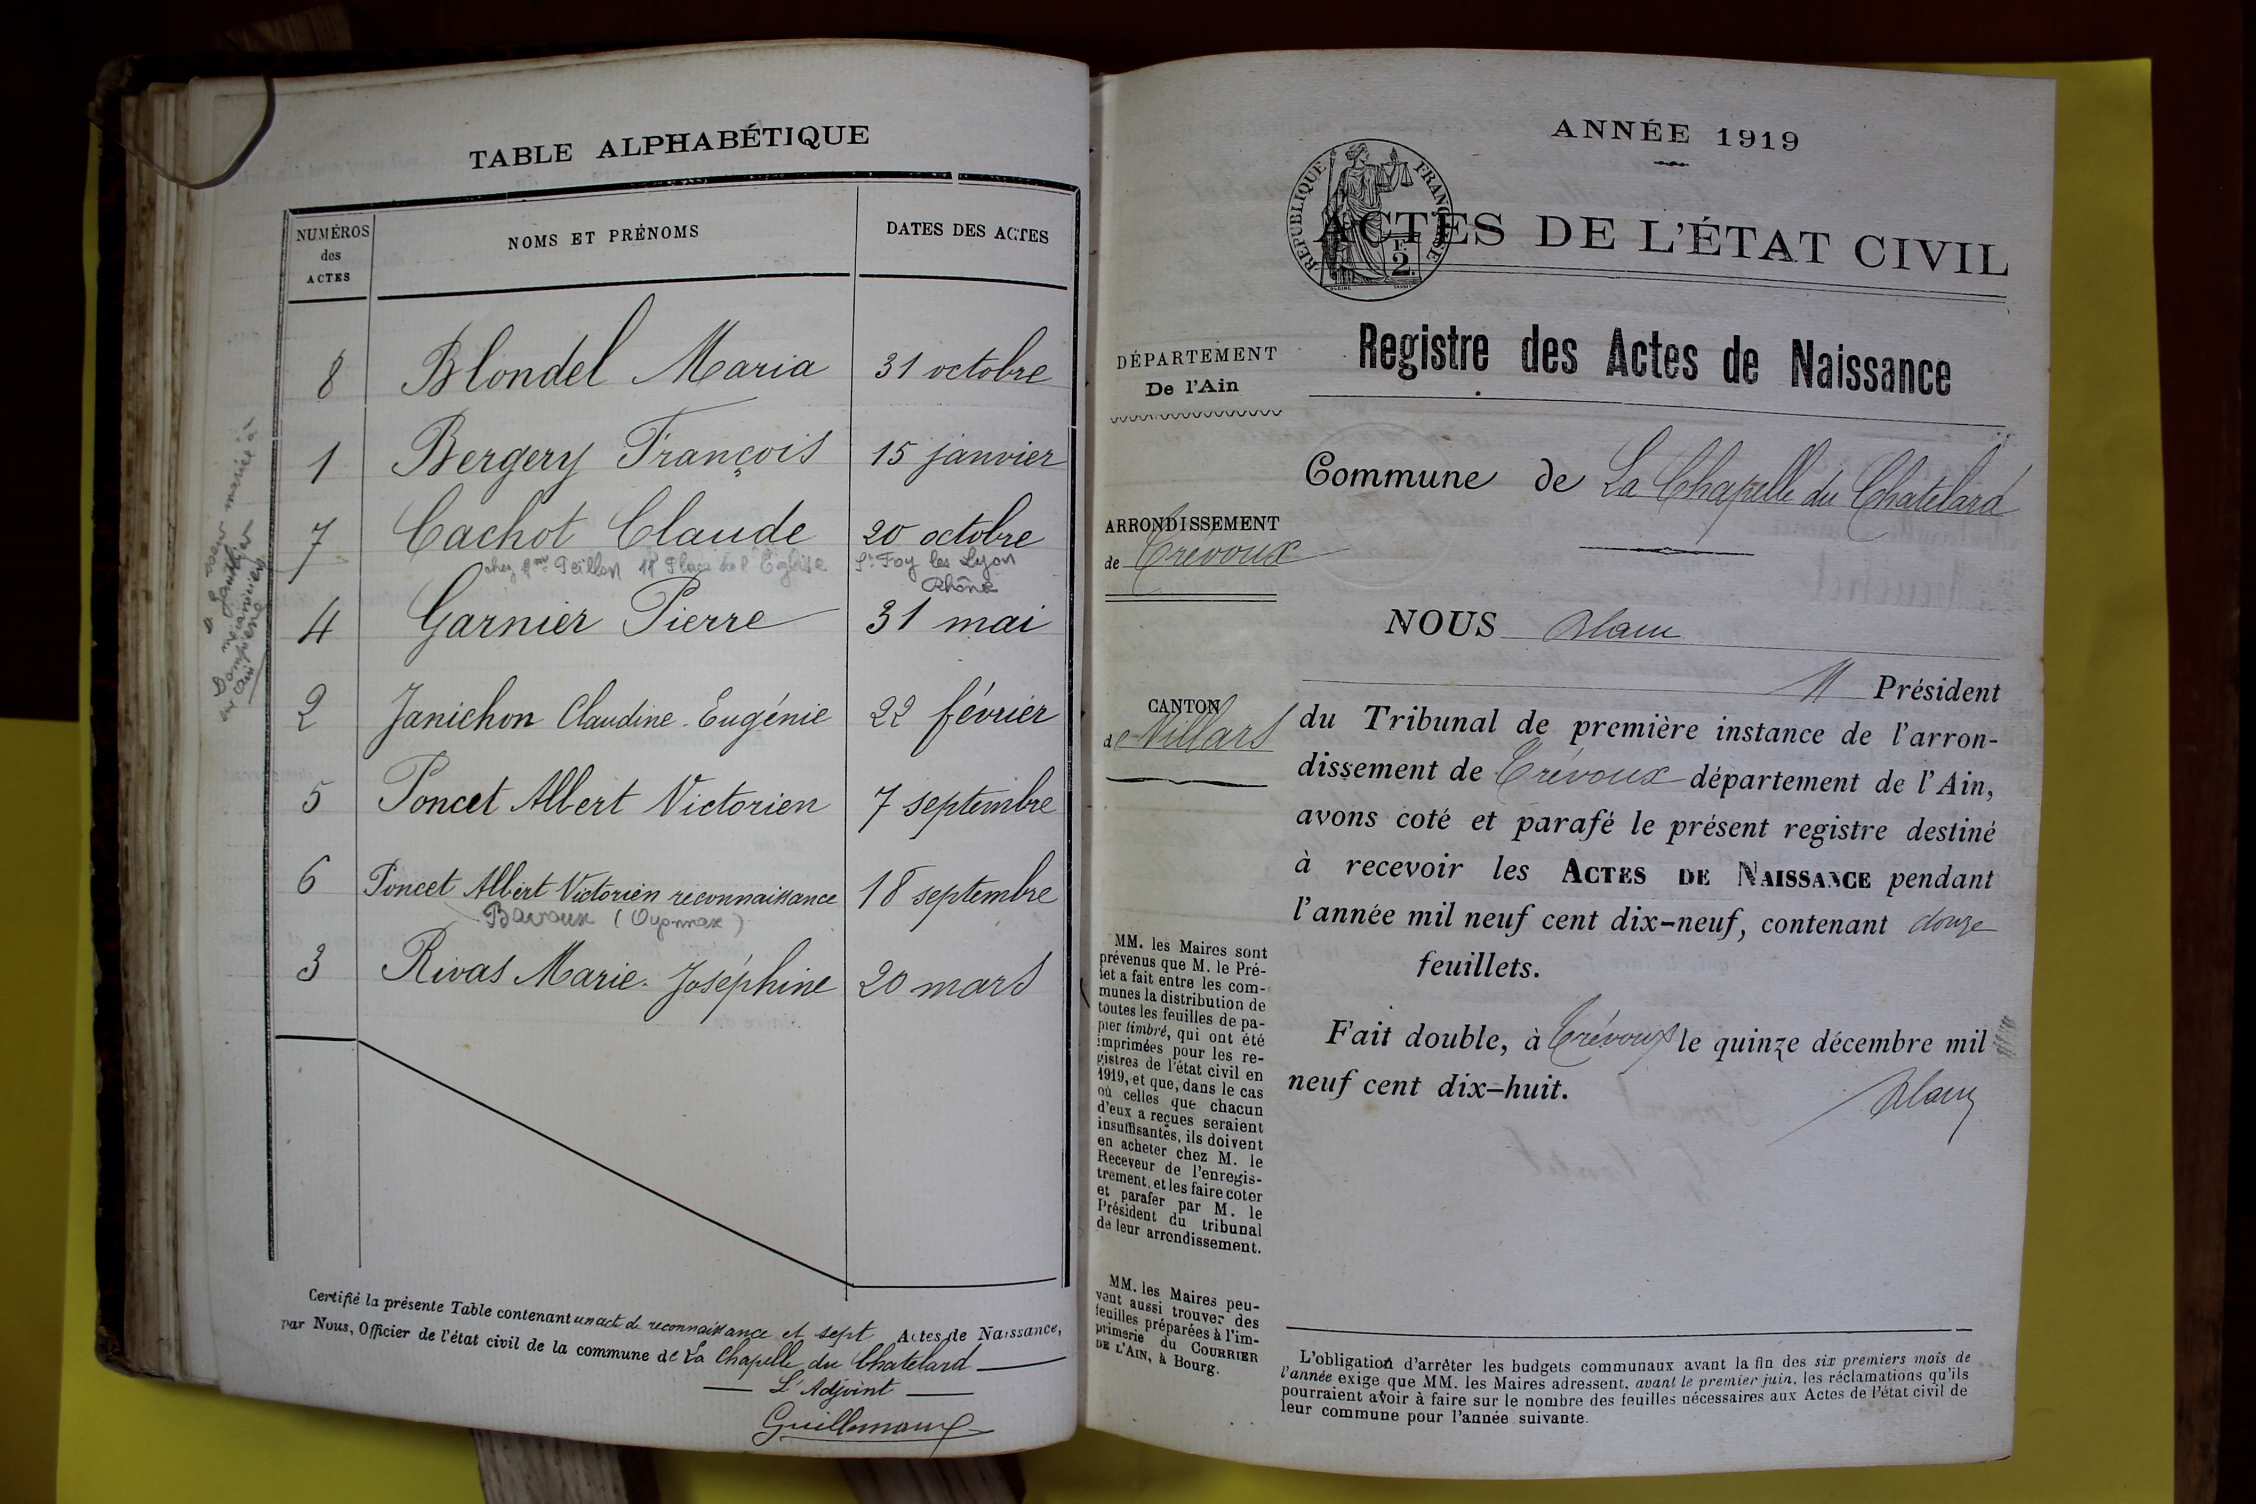 TABLE ALPHABÉTIQUE
NUMÉROS
des
ACTES
NOMS ET PRÉNOMS
DATES DES ACTES
8 Blondel Maria 31 octobre
1 Bergery François 15 janvier
7 Cachot Claude 20 octobre
chez Mme Peillon 18 Place de l'Eglise St Foy les Lyon
Rhône
4 Garnier Pierre 31 mai
2 Janichon Claudine-Eugénie 22 février
5 Poncet Albert Victorien 7 septembre
6 Poncet Albert Victorien reconnaissance 18 septembre
Bavoux (Oyonnax)
3 Rivas Marie-Joséphine 20 mars
Certifié la présente Table contenant un acte de reconnaissance et sept Actes de Naissance,
par Nous, Officier de l'état civil de la commune de La Chapelle du Chatelard
L'Adjoint
Guillemaud
mariée à
mécanicien
Ain
ANNÉE 1919
RÉPUBLIQUE FRANÇAISE
F.
2.
ACTES DE L'ÉTAT CIVIL
Registre des Actes de Naissance
DÉPARTEMENT
De l'Ain
Commune de La Chapelle du Châtelard
ARRONDISSEMENT
de Trévoux
NOUS Blanc
CANTON
de Villars
Président
du Tribunal de première instance de l'arron-
dissement de Trévoux département de l'Ain,
avons coté et parafé le présent registre destiné
à recevoir les ACTES DE NAISSANCE pendant
l'année mil neuf cent dix-neuf, contenant douze
feuillets.
Fait double, à Trévoux le quinze décembre mil
neuf cent dix-huit.
Blanc
MM. les Maires sont
prévenus que M. le Pré-
fet a fait entre les com-
munes la distribution de
toutes les feuilles de pa-
pier timbré, qui ont été
imprimées pour les re-
gistres de l'état civil en
1919, et que, dans le cas
où celles que chacun
d'eux a reçues seraient
insuffisantes, ils doivent
en acheter chez M. le
Receveur de l'enregis-
trement, et les faire coter
et parafer par M. le
Président du tribunal
de leur arrondissement.
MM. les Maires peu-
vent aussi trouver des
feuilles préparées à l'im-
primerie du COURRIER
DE L'AIN, à Bourg.
L'obligation d'arrêter les budgets communaux avant la fin des six premiers mois de
l'année exige que MM. les Maires adressent, avant le premier juin, les réclamations qu'ils
pourraient avoir à faire sur le nombre des feuilles nécessaires aux Actes de l'état civil de
leur commune pour l'année suivante.